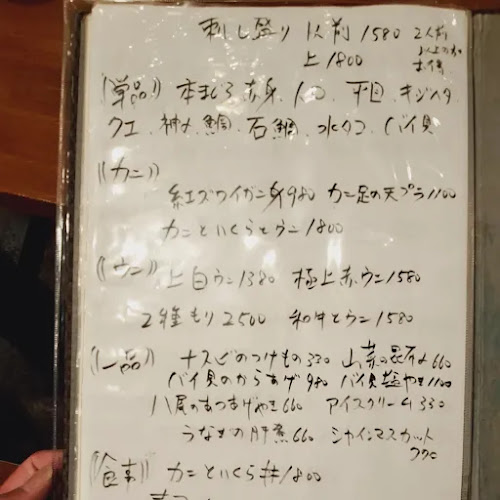 刺し盛り 1人前 1580 2人前
上 1800 以上のみ
((単品)) 本まぐろ赤身、トロ、平目、キジハタ
クエ、神〆鯛、石鯛、水タコ、バイ貝
((カニ))
紅ズワイガニ身 980 カニ足の天プラ 1100
カニといくらとウニ 1800
((ウニ)) 上白ウニ 1380 極上赤ウニ 1580
2種もり 2500 和牛とウニ 1580
((一品)) ナスビのつけもの 330 山菜の昆布〆 660
バイ貝のからあげ 980 バイ貝塩やき 1100
八尾のあつあげやき 660 アイスクリーム 330
うなぎの肝煮 660 シャインマスカット
770
((食事)) カニといくら丼 1800